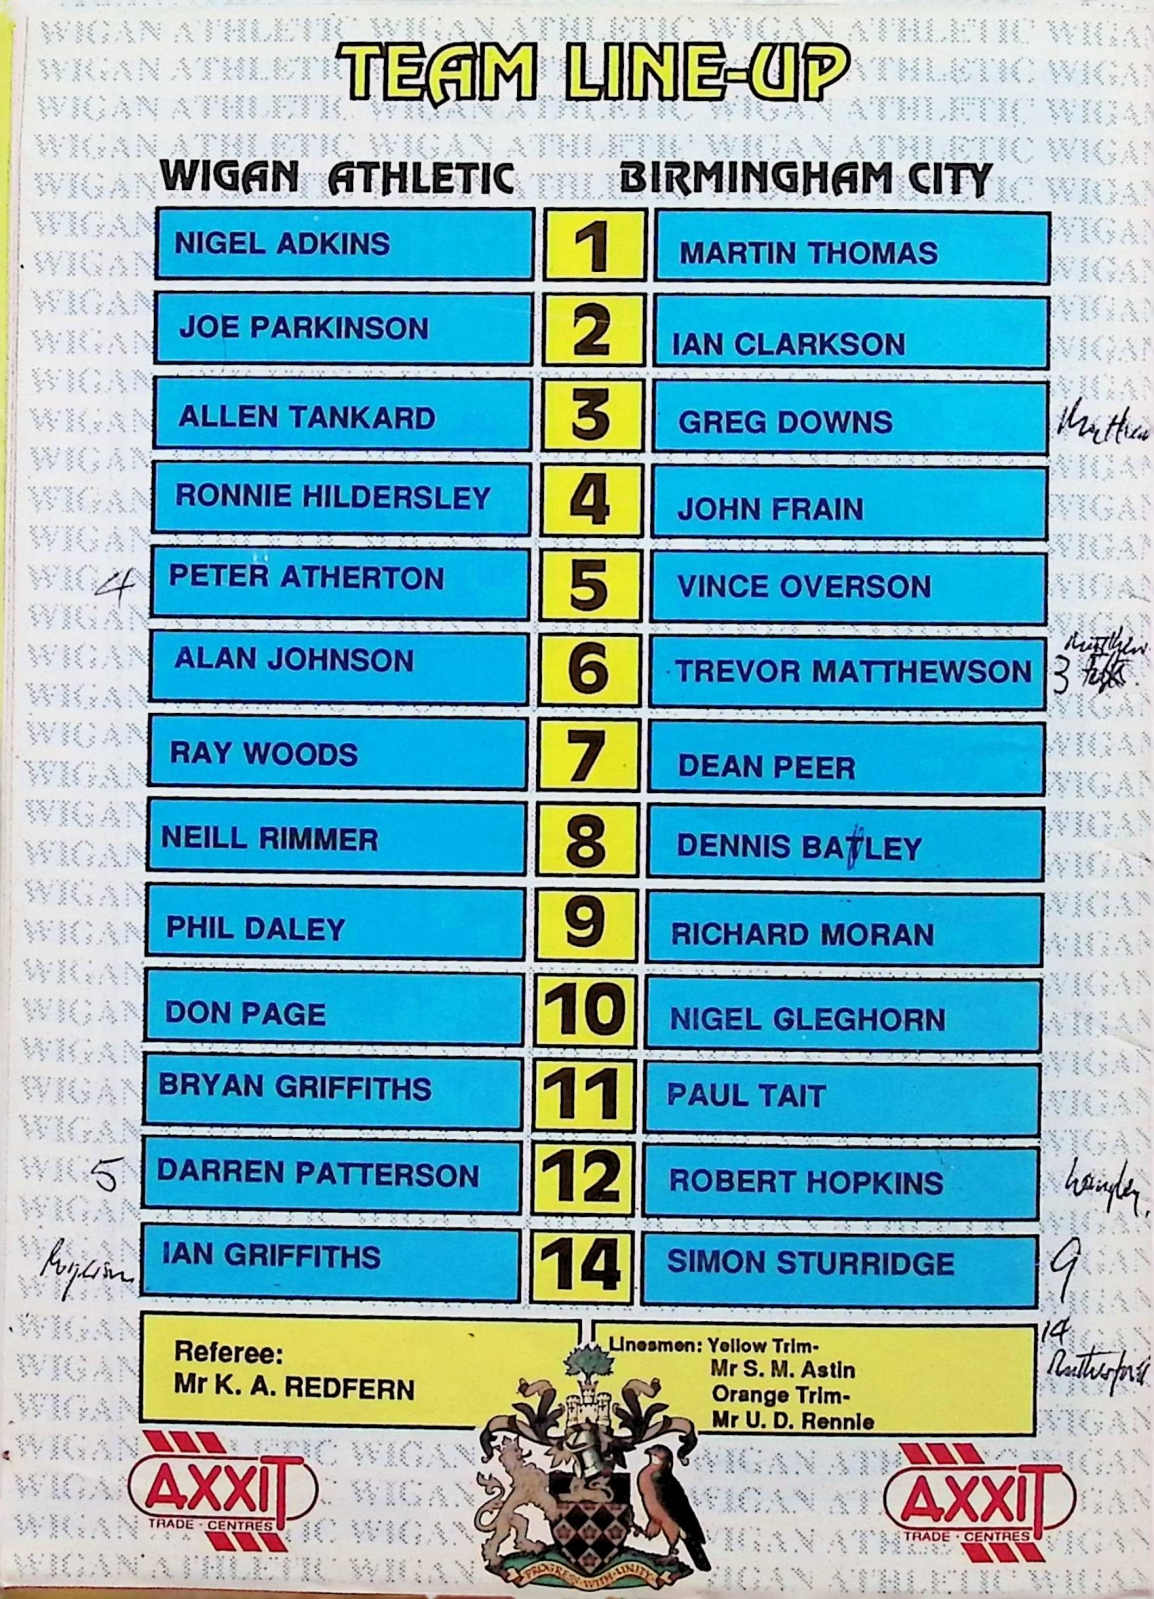 TEAM LINE-UP
WIGAN ATHLETIC BIRMINGHAM CITY
NIGEL ADKINS 1 MARTIN THOMAS
JOE PARKINSON 2 IAN CLARKSON
ALLEN TANKARD 3 GREG DOWNS
RONNIE HILDERSLEY 4 JOHN FRAIN
4 PETER ATHERTON 5 VINCE OVERSON
ALAN JOHNSON 6 TREVOR MATTHEWSON 3
RAY WOODS 7 DEAN PEER
NEILL RIMMER 8 DENNIS BATLEY
PHIL DALEY 9 RICHARD MORAN
DON PAGE 10 NIGEL GLEGHORN
BRYAN GRIFFITHS 11 PAUL TAIT
5 DARREN PATTERSON 12 ROBERT HOPKINS
IAN GRIFFITHS 14 SIMON STURRIDGE 9
14
Rutherford
Referee:
Mr K. A. REDFERN
Linesmen: Yellow Trim-
Mr S. M. Astin
Orange Trim-
Mr U. D. Rennie
AXXIT
TRADE · CENTRES
PROGRESS WITH UNITY
AXXIT
TRADE · CENTRES
WIGAN ATHLETIC